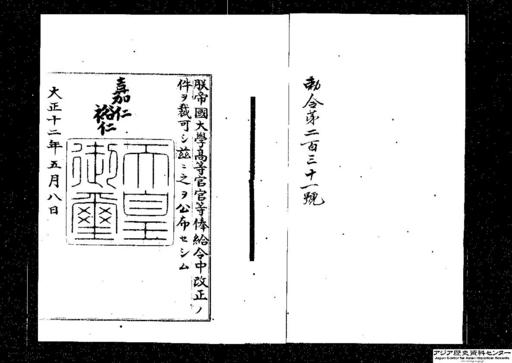 勅令第二百三十一號
朕帝國大學高等官官等俸給令中改正ノ
件ヲ裁可シ茲ニ之ヲ公布セシム
嘉仁
裕仁
天皇
御璽
大正十二年五月八日
アジア歴史資料センター
Japan Center for Asian Historical Records